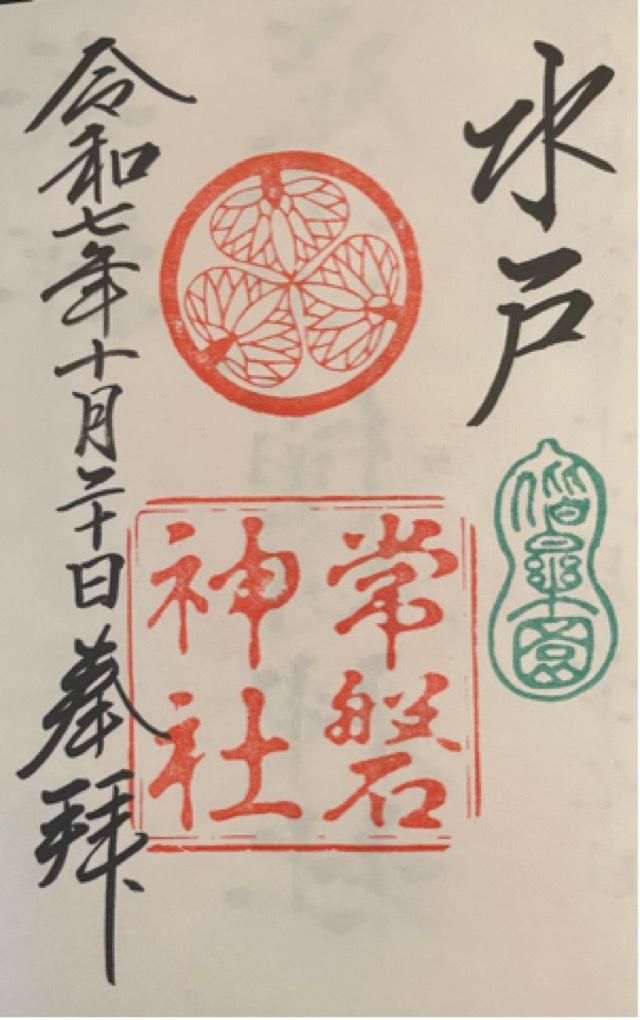 水戸
偕楽園
常磐
神社
令和七年十月二十日奉拝